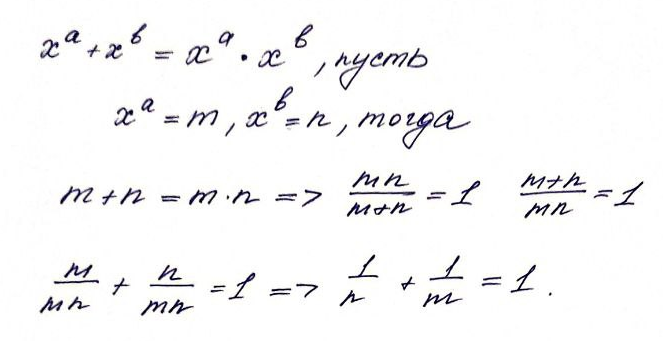 x^a + x^b = x^a · x^b, пусть
x^a = m, x^b = n, тогда
m + n = m · n => mn/(m+n) = 1   (m+n)/mn = 1
m/mn + n/mn = 1 => 1/n + 1/m = 1.